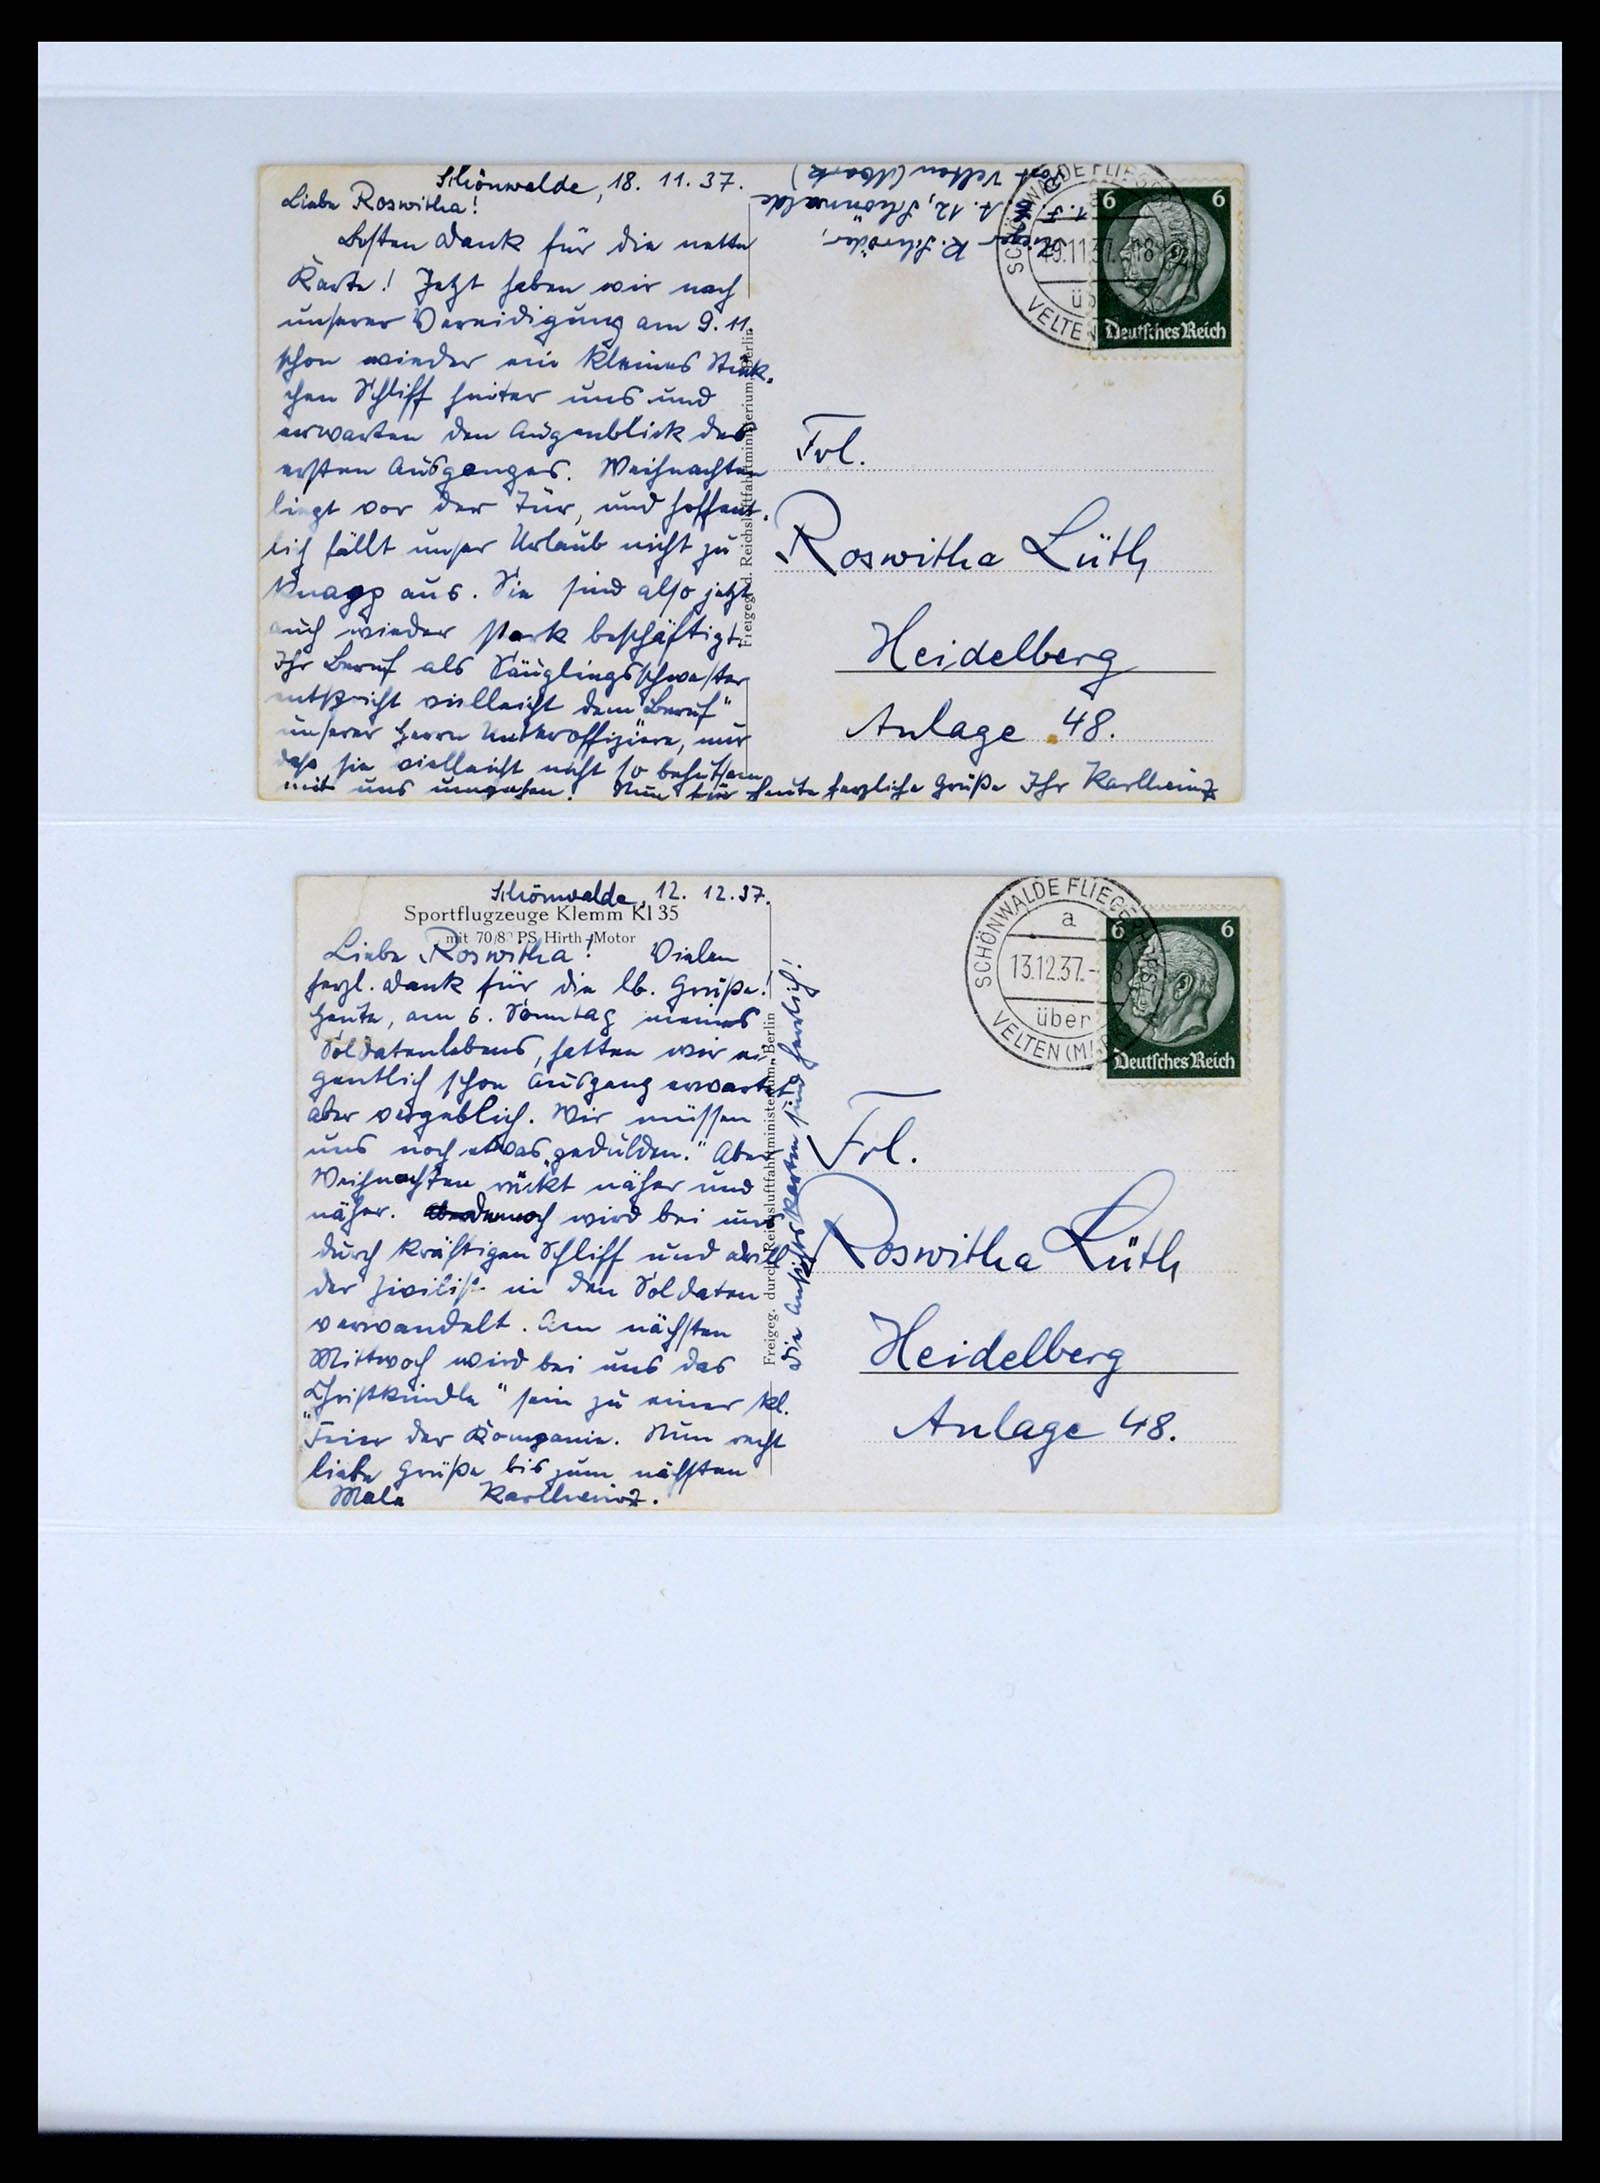 Schönwalde, 18. 11. 37.
Liebe Roswitha!
Besten Dank für die nette
Karte! Jetzt haben wir nach
unserer Vereidigung am 9. 11.
schon wieder ein kleines Stück-
chen Schliff hinter uns und
erwarten den Augenblick des
ersten Ausganges. Weihnachten
liegt vor der Tür, und hoffent-
lich fällt unser Urlaub nicht zu
knapp aus. Sie sind also jetzt
auch wieder stark beschäftigt.
Ihr Beruf als Säuglingsschwester
entspricht vielleicht dem „Beruf"
unserer Herrn Unteroffiziere, nur
daß sie vielleicht nicht so behutsam
mit uns umgehen. Nun für heute herzliche Grüße Ihr Karlheinz
Freigeg. d. Reichsluftfahrtministerium, Berlin
Flieger K. Schröder,
A. 12, Schönwalde
Post Velten (Mark)
SCHÖNWALDE FLIEGER
19.11.37.-18
über
VELTEN
6 6
Deutsches Reich
Frl.
Roswitha Lüth
Heidelberg
Anlage 48.
Schönwalde, 12. 12. 37.
Sportflugzeuge Klemm Kl 35
mit 70/80 PS Hirth-Motor
Liebe Roswitha! Vielen
herzl. Dank für die lb. Grüße!
Heute, am 6. Sonntag meines
Soldatenlebens, hatten wir ei-
gentlich schon Ausgang erwartet
aber vergeblich. Wir müssen
uns noch etwas „gedulden." Aber
Weihnachten rückt näher und
näher. Dennoch wird bei uns
durch kräftigen Schliff und Drill
der Zivilist in den Soldaten
verwandelt. Am nächsten
Mittwoch wird bei uns das
„Christkindle" sein zu einer kl.
Feier der Kompanie. Nun recht
liebe Grüße bis zum nächsten
Male Karlheinz.
Freigeg. durch Reichsluftfahrtministerium, Berlin
Die Ansichtskarten sind herrlich!
SCHÖNWALDE FLIEGERHORST
a
13.12.37.- 8
über
VELTEN (MARK)
6 6
Deutsches Reich
Frl.
Roswitha Lüth
Heidelberg
Anlage 48.